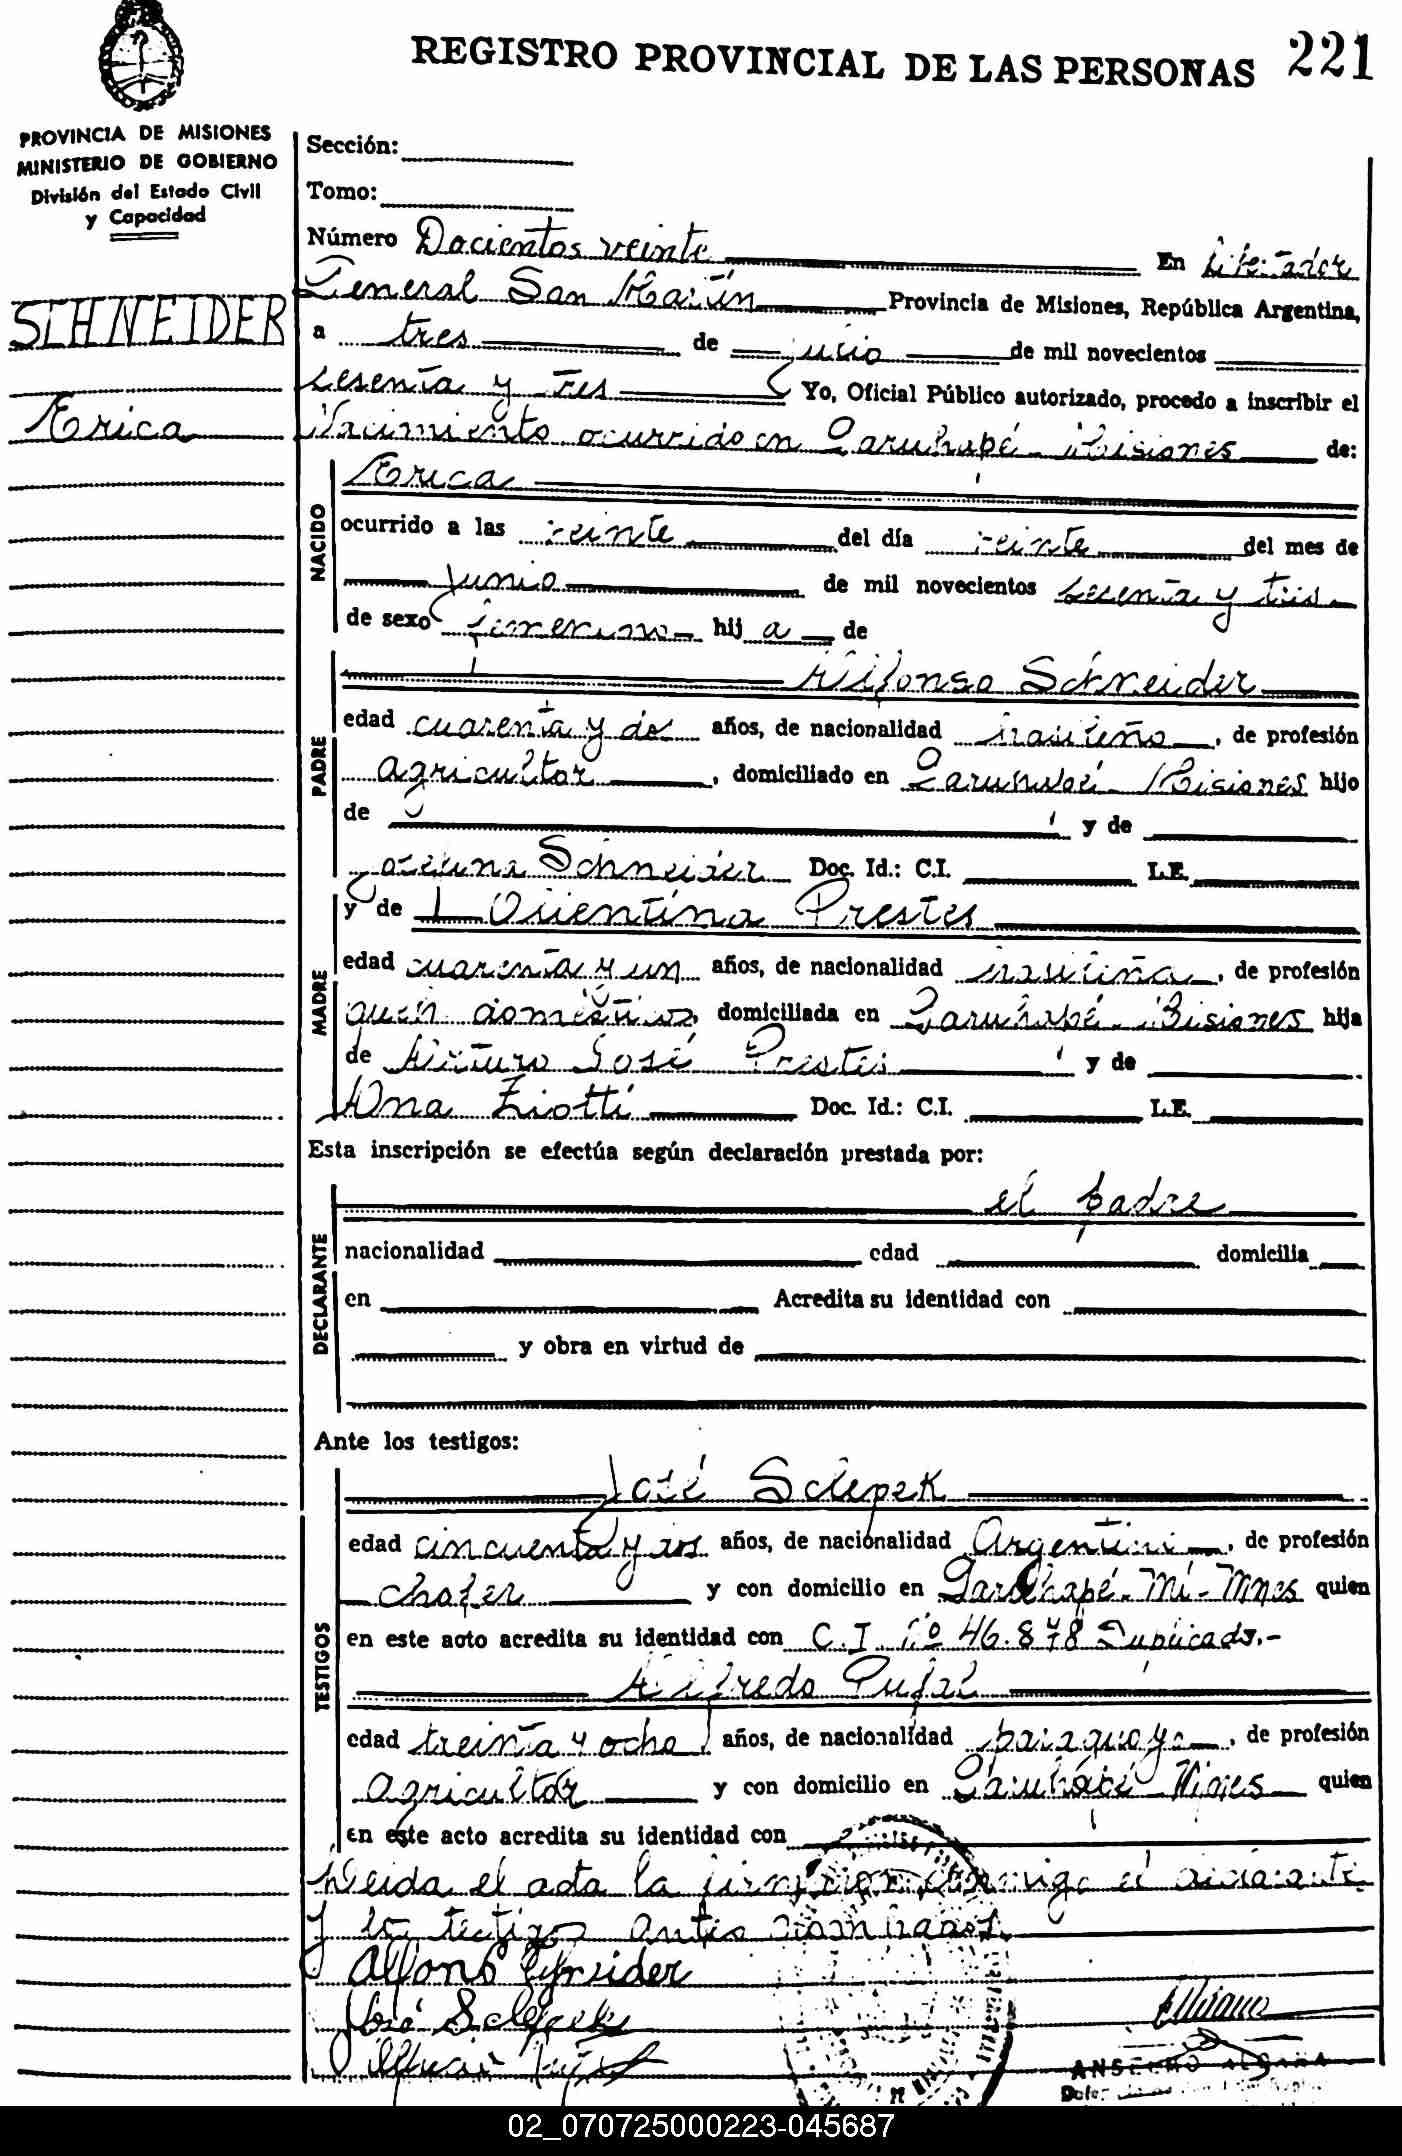 REGISTRO PROVINCIAL DE LAS PERSONAS 221
PROVINCIA DE MISIONES
MINISTERIO DE GOBIERNO
División del Estado Civil
y Capacidad
SCHNEIDER
Erica
Sección:
Tomo:
Número Docientos veinte En Libertador
General San Martín Provincia de Misiones, República Argentina,
a tres de julio de mil novecientos
sesenta y tres Yo, Oficial Público autorizado, procedo a inscribir el
Nacimiento ocurrido en Garuhapé Misiones de:
NACIDO
Erica
ocurrido a las veinte del día veinte del mes de
junio de mil novecientos sesenta y tres
de sexo femenino hij a de
PADRE
Alfonso Schneider
edad cuarenta y dos años, de nacionalidad brasileño, de profesión
agricultor, domiciliado en Garuhapé Misiones hijo
de y de
Schneider Doc. Id.: C.I. L.E.
MADRE
y de Prestes
edad cuarenta y un años, de nacionalidad brasileña, de profesión
domiciliada en Garuhapé Misiones hija
de Arturo José Prestes y de
Ana Ziotti Doc. Id.: C.I. L.E.
Esta inscripción se efectúa según declaración prestada por:
DECLARANTE
el padre
nacionalidad edad domicilia
en Acredita su identidad con
y obra en virtud de
Ante los testigos:
TESTIGOS
José Sclepek
edad cincuenta y dos años, de nacionalidad Argentino, de profesión
chofer y con domicilio en Garuhapé-Mí-Mnes quien
en este acto acredita su identidad con C.I. Nº 46.878 Duplicado.-
Alfredo Pufal
edad treinta y ocho años, de nacionalidad paraguayo, de profesión
agricultor y con domicilio en Garuhapé Mnes quien
en este acto acredita su identidad con
Leida el acta la firman conmigo el declarante
y los testigos antes nombrados.
Alfons Schneider
José Sclepek
ANSELMO
02_070725000223-045687